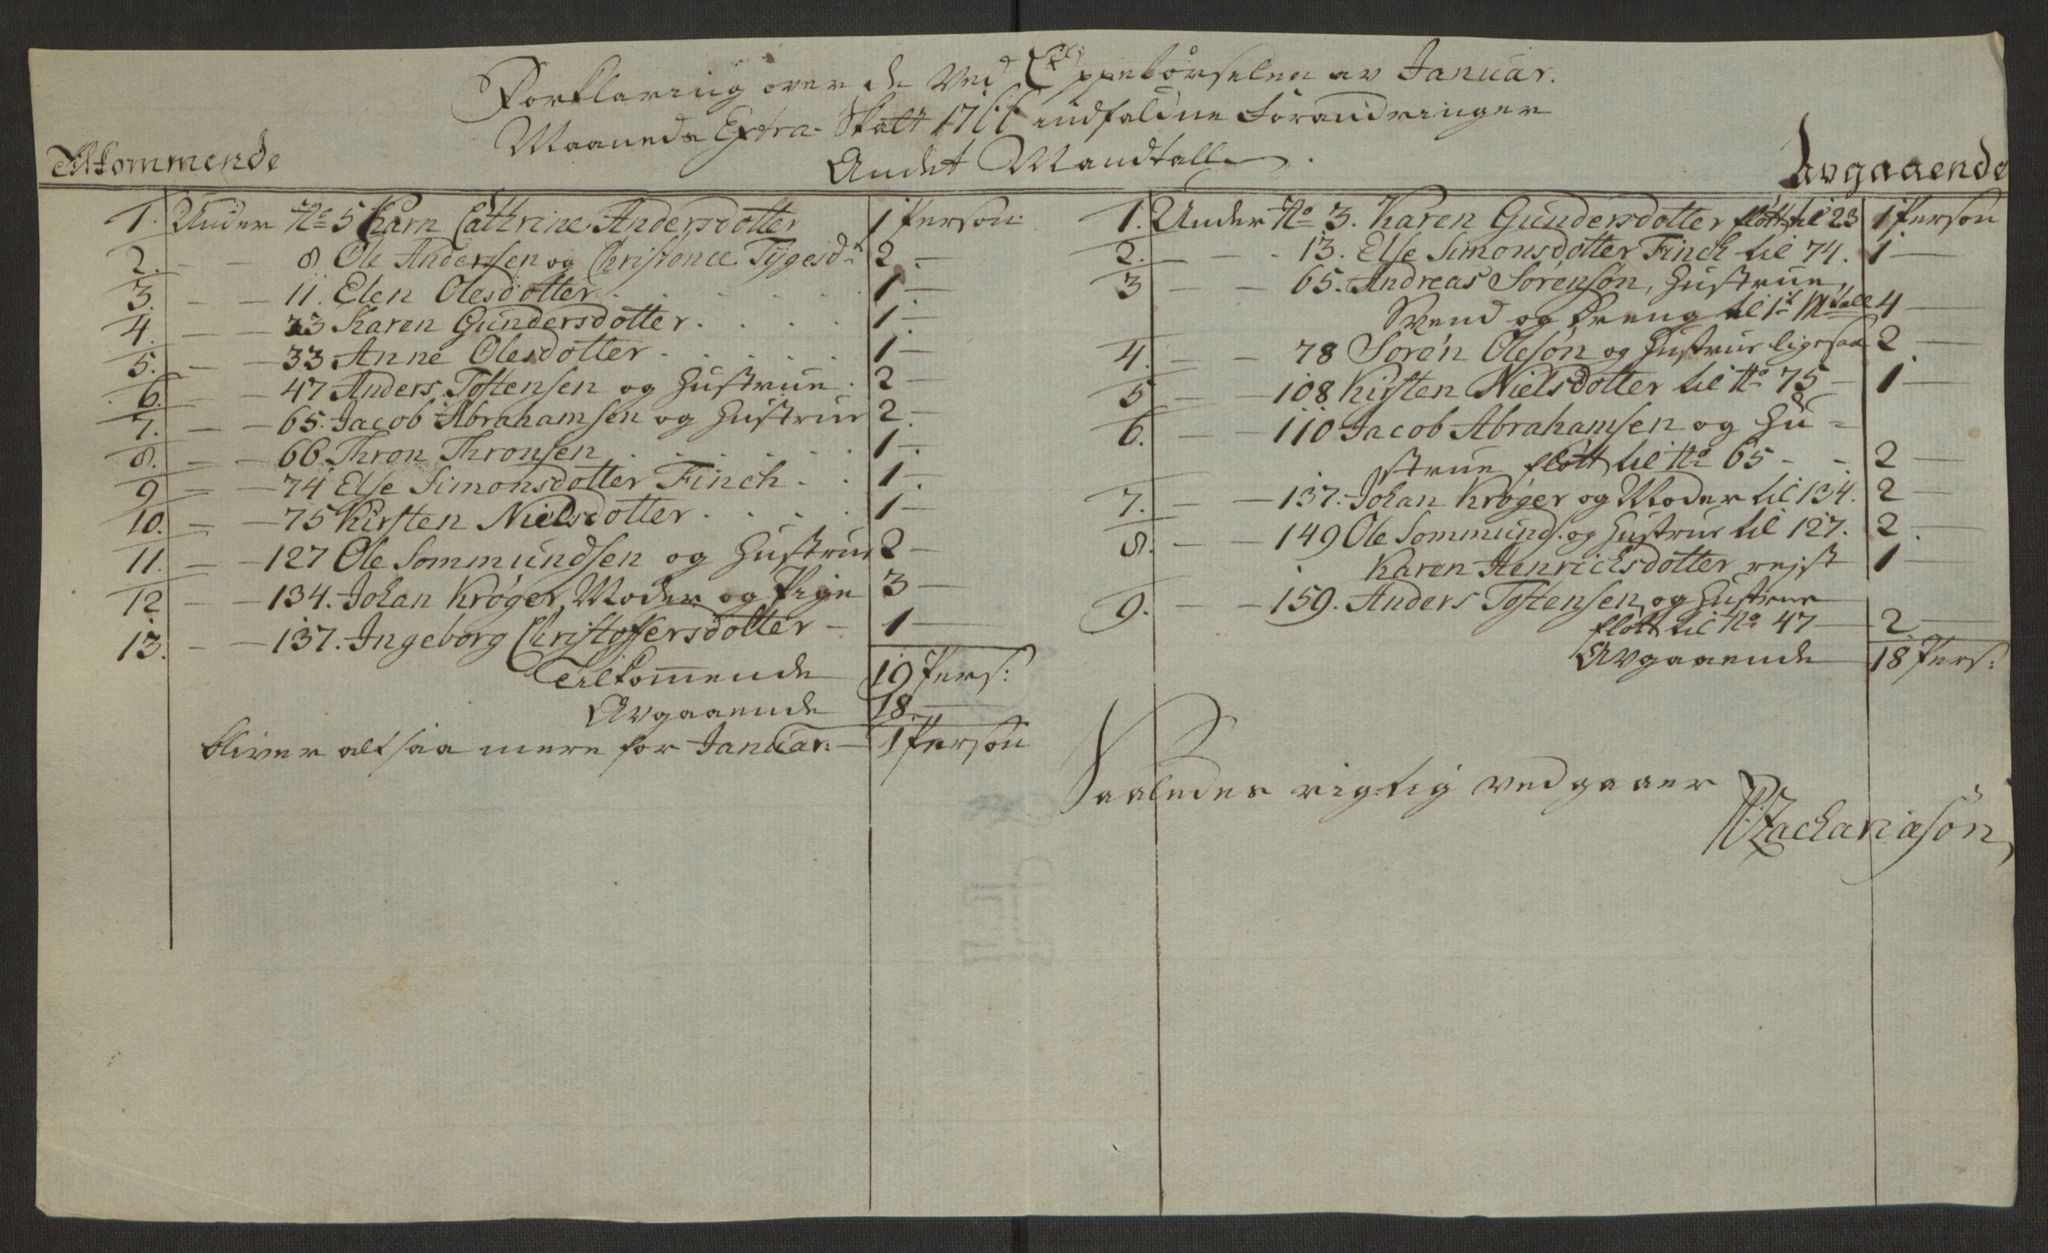 Forklaring over de ved Oppebørselen av Januar.
Maaneds Extra-Skatt 1766 indfaldne Forandringer
Andet Mandtall.
Tilkommende
1. Under No 5 Karn Cathrine Andersdotter 1 Person:
2. — — 8 Ole Anderssen og Christence Tygesdr 2 —
3. — — 11. Elen Olesdotter . . . . . . 1 —
4. — — 23 Karen Gundersdotter . . . . 1 —
5. — — 33 Anne Olesdotter . . . . . 1 —
6. — — 47 Anders Toftensen og Hustrue . 2 —
7. — — 65. Jacob Abrahamsen og Hustrue 2 —
8. — — 66 Thron Thronsen . . . . . . 1 —
9 — — 74 Else Simonsdotter Finch . . 1 —
10. — — 75 Kirsten Nielsdotter . . . . 1 —
11. — — 127 Ole Sommundsen og Hustrue 2 —
12 — — 134. Johan Krøger, Moder og Pige 3 —
13. — — 137. Ingeborg Christoffersdotter — 1 —
Tilkommende 19 Pers:
Avgaaende 18 —
bliver altsaa mere for Januar: — 1 Person
Avgaaende
1. Under No 3. Karen Gundersdotter fløtt til 23 1 Person
2. — — 13. Else Simonsdotter Finch til 74. 1 —
3 — — 65. Andreas Sørensøn, Hustrue,
Svend og Dreng til 1t Mtall 4 —
4. — — 78 Sørén Olesøn og Hustrue ligesaa 2 —
5 — — 108 Kirsten Nielsdotter til No 75 — 1 —
6. — — 110 Jacob Abrahamsen og Hu-
strue fløtt til No 65 - - 2 —
7. — — 137. Johan Krøger og Moder til 134. 2 —
8. — — 149 Ole Sommunds. og Hustrue til 127. 2 —
Karen Henrichsdotter rejst 1 —
9. — — 159. Anders Toftensen og Hustrue
fløtt til No 47 — 2 —
Avgaaende 18 Pers:
Saaledes rigtig vedgaaer
Zachariasøn